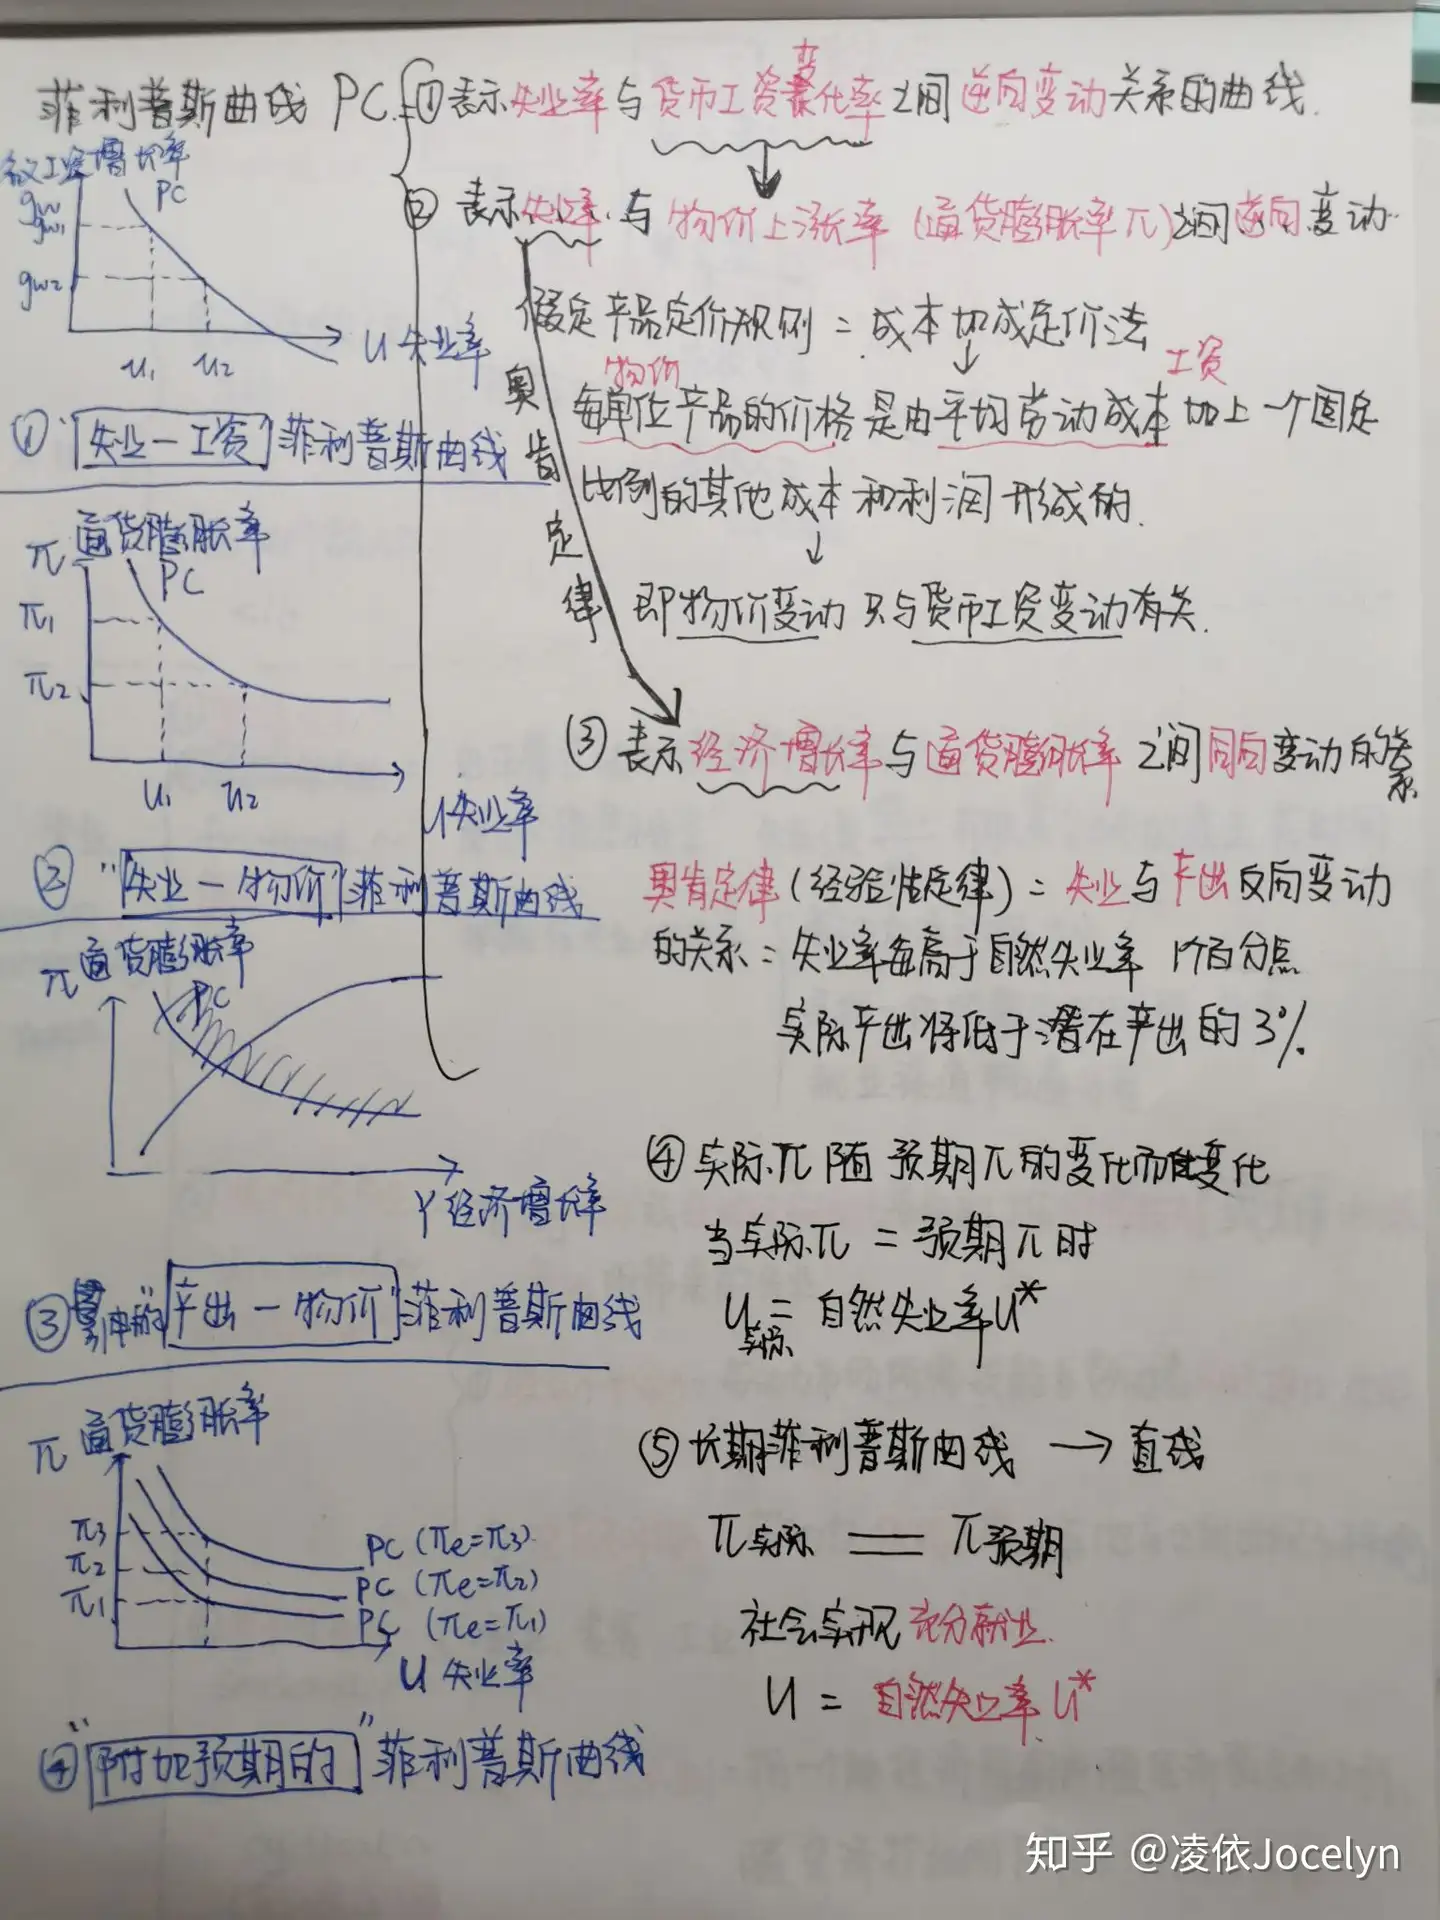 菲利普斯曲线 PC
①表示失业率与货币工资变化率之间逆向变动关系的曲线.
②表示失业率与物价上涨率(通货膨胀率π)之间逆向变动
假定产品定价规则 = 成本加成定价法
物价
工资
每单位产品的价格是由平均劳动成本加上一个固定
比例的其他成本和利润形成的.
即物价变动只与货币工资变动有关.
奥肯定律
③表示经济增长率与通货膨胀率之间同向变动的关系.
奥肯定律(经验性定律) = 失业与产出反向变动
的关系: 失业率每高于自然失业率 1个百分点
实际产出将低于潜在产出的3%.
④实际π随预期π的变化而变化
当实际π = 预期π时
U实际 = 自然失业率U*
⑤长期菲利普斯曲线 → 直线
π实际 = π预期
社会实现充分就业.
U = 自然失业率U*
名义工资增长率
gw
PC
gw1
gw2
U 失业率
u1 u2
①"失业—工资"菲利普斯曲线
π 通货膨胀率
PC
π1
π2
u1 u2
U失业率
②"失业—物价"菲利普斯曲线
π 通货膨胀率
PC
Y 经济增长率
③"产出—物价"菲利普斯曲线
π 通货膨胀率
π3
π2
π1
PC (πe=π3)
PC (πe=π2)
PC (πe=π1)
U 失业率
④"附加预期的"菲利普斯曲线
知乎 @凌依Jocelyn